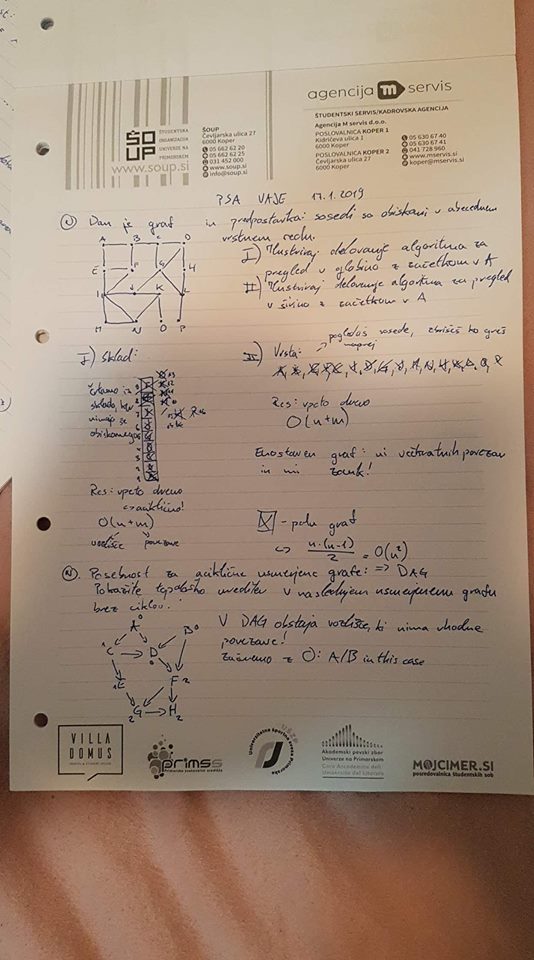 ŠOUP
ŠTUDENTSKA
ORGANIZACIJA
UNIVERZE NA
PRIMORSKEM
www.soup.si
ŠOUP
Čevljarska ulica 27
6000 Koper
05 662 62 20
05 662 62 25
031 452 000
www.soup.si
info@soup.si
agencija m servis
ŠTUDENTSKI SERVIS/KADROVSKA AGENCIJA
Agencija M servis d.o.o.
POSLOVALNICA KOPER 1
Kidričeva ulica 1
6000 Koper
POSLOVALNICA KOPER 2
Čevljarska ulica 27
6000 Koper
05 630 67 40
05 630 67 41
041 728 960
www.mservis.si
koper@mservis.si
PSA VAJE 17.1.2019
1) Dan je graf in predpostavka: sosedi so obiskani v abecednem
vrstnem redu.
I) Ilustriraj delovanje algoritma za
pregled v globino z začetkom v A
II) Ilustriraj delovanje algoritma za pregled
v širino z začetkom v A
A B C D
E F G H
I J K L
M N O P
I) Sklad:
črtamo iz
sklada, ker
nimajo še
obiskanega
Res: vpeto drevo
<=> aciklično!
O(n+m)
vozlišče povezave
II) Vrsta:
pogledaš sosede, zbrišeš ko greš
naprej
Res: vpeto drevo
O(n+m)
Enostaven graf: ni večkratnih povezav
in ni zank!
- poln graf
<=> n·(n-1)/2 = O(n²)
2) Posebnost za aciklične usmerjene grafe: => DAG
Pokažite topološko ureditev v naslednjem usmerjenem grafu
brez ciklov:
A 0
B 0
1 C
D 0
E
F 2
2 G
H 2
V DAG obstaja vozlišče, ki nima vhodne
povezave!
Začnemo z 0: A/B in this case
VILLA
DOMUS
primss
Univerzitetna športna zveza Primorske
Akademski pevski zbor
Univerze na Primorskem
Coro Accademico dell'
Università del Litorale
MOJCIMER.SI
posredovalnica študentskih sob